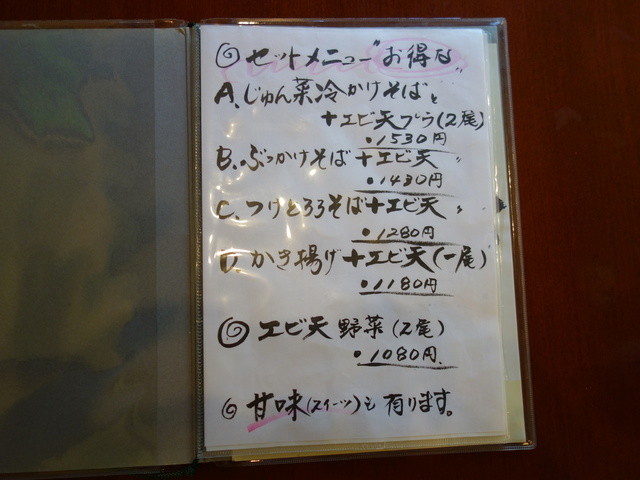 ◎ セットメニュー"お得な"
A、じゅん菜冷かけそば
+エビ天プラ(2尾)
・1530円
B、ぶっかけそば+エビ天 〃
・1430円
C、つけとろろそば+エビ天 〃
・1280円
D、かき揚げ+エビ天(一尾)
・1180円
◎ エビ天 野菜(2尾)
・1080円、
◎ 甘味(スイーツ)も 有ります。